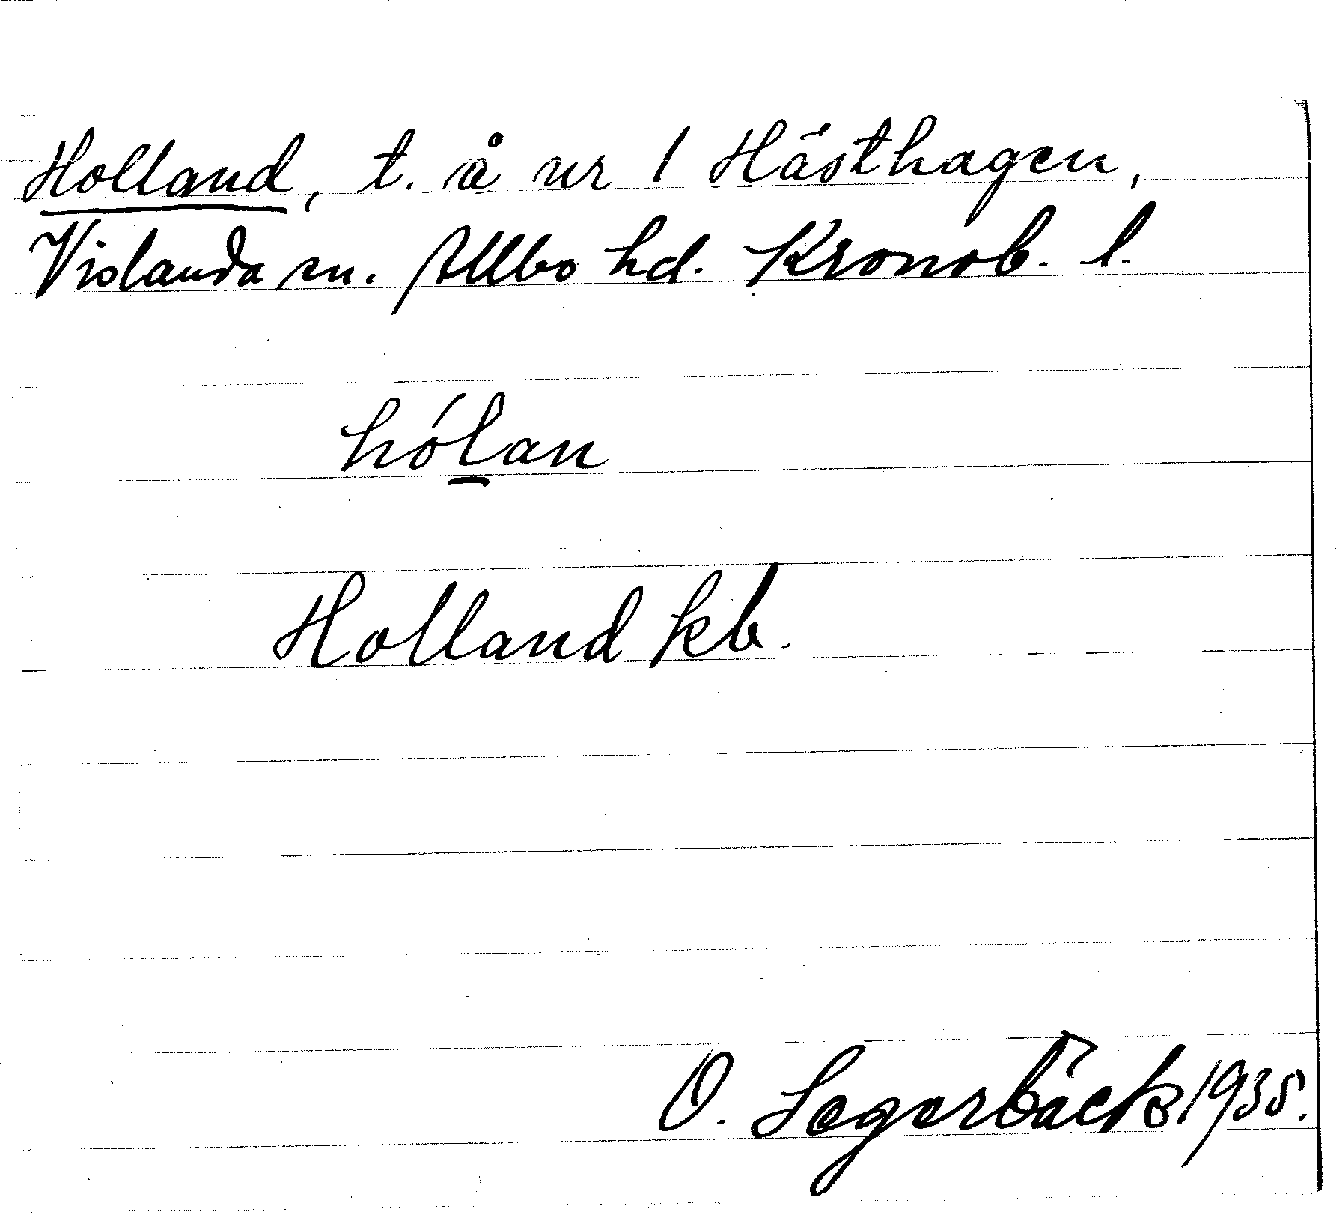 Holland, t. å nr 1 Hästhagen,
Vislanda sn. Allbo hd. Kronob. l.
hólan
Holland kb.
O. Segerbäck 1935.